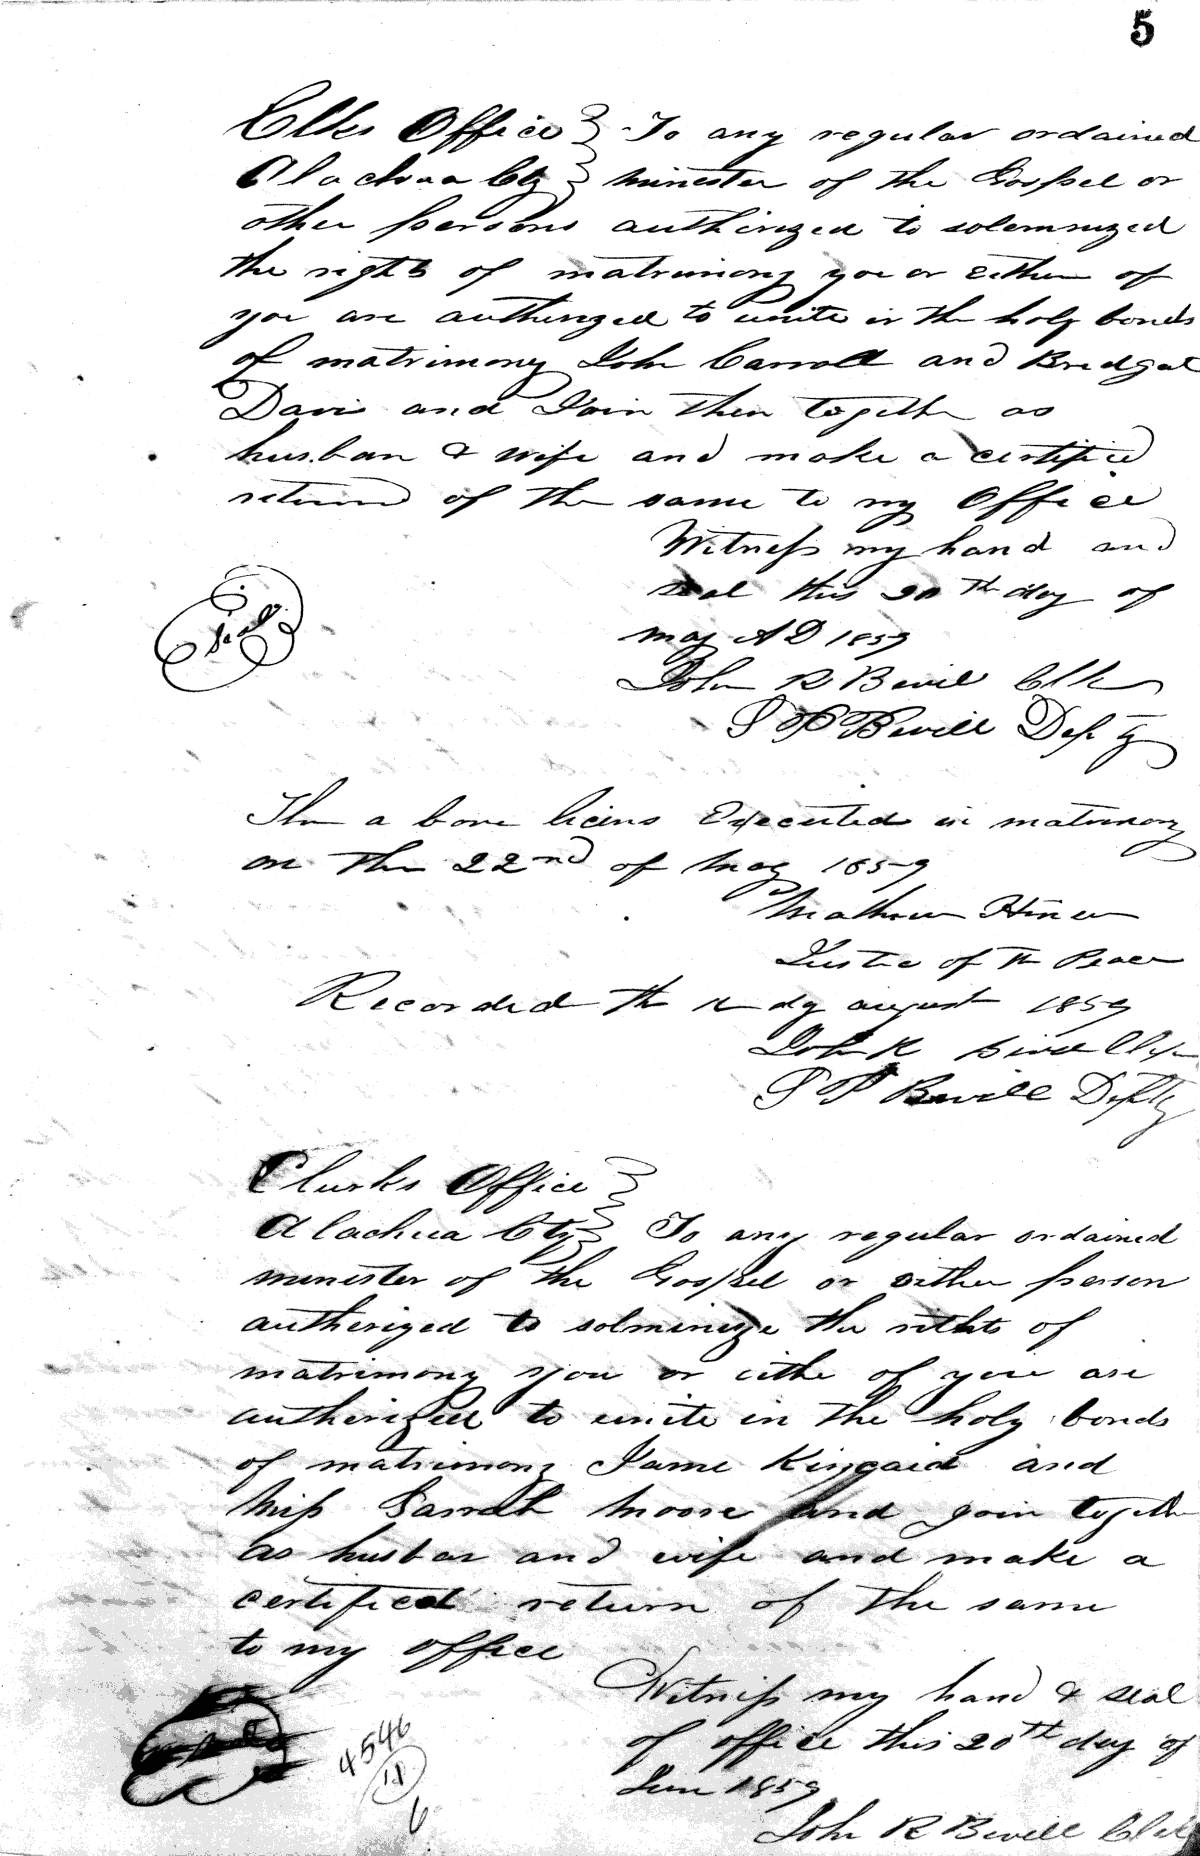 5
Clks Office } To any regular ordained
Alachua Cty } minester of the Gospel or
other persons authirized to solemnized
the rights of matrimony you or either of
you are autherized to unite in the holy bonds
of matrimony John Carroll and Bredget
Davis and Join then togeth as
husban & wife and make a certified
return of the same to my Office
Witness my hand and
seal this 20th day of
may AD 1859
John R Bevill Clk
S P Bevill Depty
Seal
The a bove licens Executed in matrimony
on the 22nd of May 1859
Mathew Hines
Justice of th Peace
Recorded th dy august 1859
John R Bevill Clk
S P Bevill Depty
Clurks Office }
Alachua Cty } To any regular ordained
minester of the Gospel or oither person
autherized to solminize the rithts of
matrimony you or eithe of you are
autherized to unite in the holy bonds
of matrimony Jame Kingaid and
Miss Sarrah Moore and join togeth
as husban and wife and make a
certified return of the same
to my office
Witniss my hand & seal
of office this 20th day of
June 1859
John R Bevill Clk
4546
6